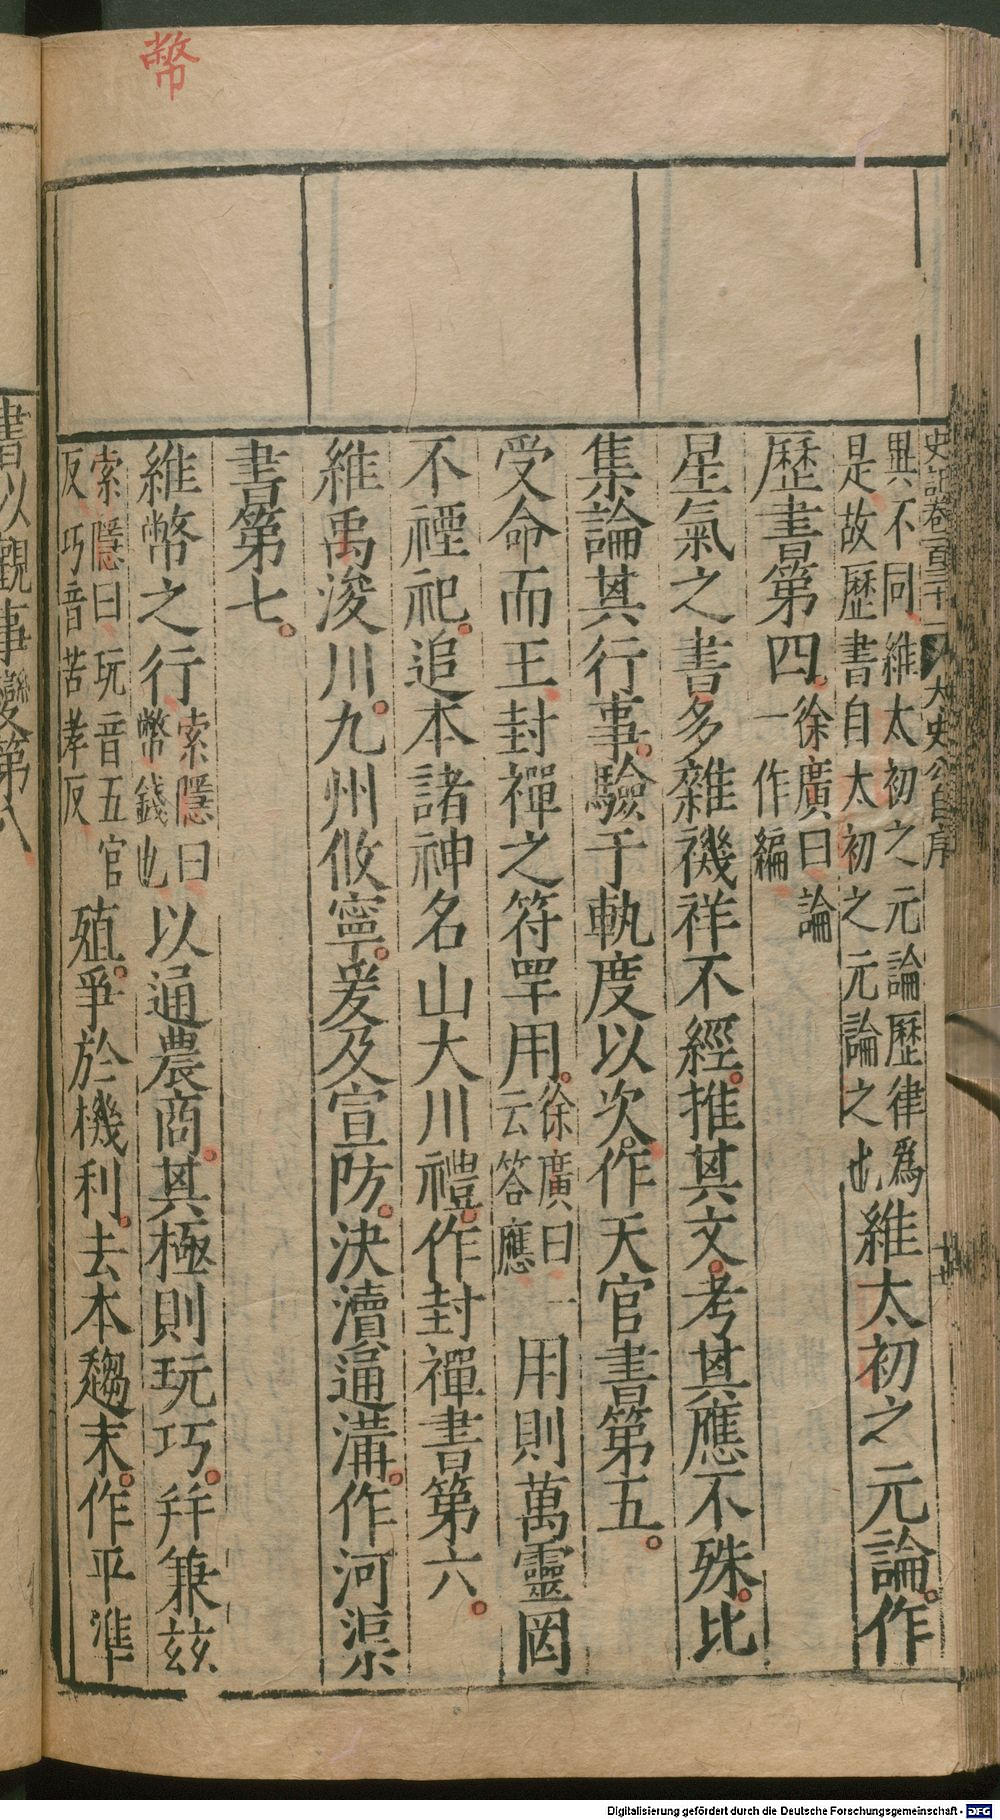 幣
史記卷一百三十 太史公自序
異不同維太初之元論歷律爲
是故歷書自太初之元論之也維太初之元論。作
歷書第四。徐廣曰論
一作編
星氣之書多雜禨祥不經。推其文。考其應不殊。比
集論其行事。驗于軌度以次。作天官書第五。
受命而王封禪之符罕用。徐廣曰一
云答應用則萬靈罔
不禋祀。追本諸神名山大川禮。作封禪書第六。
維禹浚川。九州攸寧。爰及宣防。決瀆通溝。作河渠
書第七。
維幣之行索隱曰
幣錢也以通農商。其極則玩巧。幷兼玆
索隱曰玩音五官
反巧音苦孝反殖。爭於機利。去本趨末。作平準
書以觀事變第八
Digitalisierung gefördert durch die Deutsche Forschungsgemeinschaft - DFG